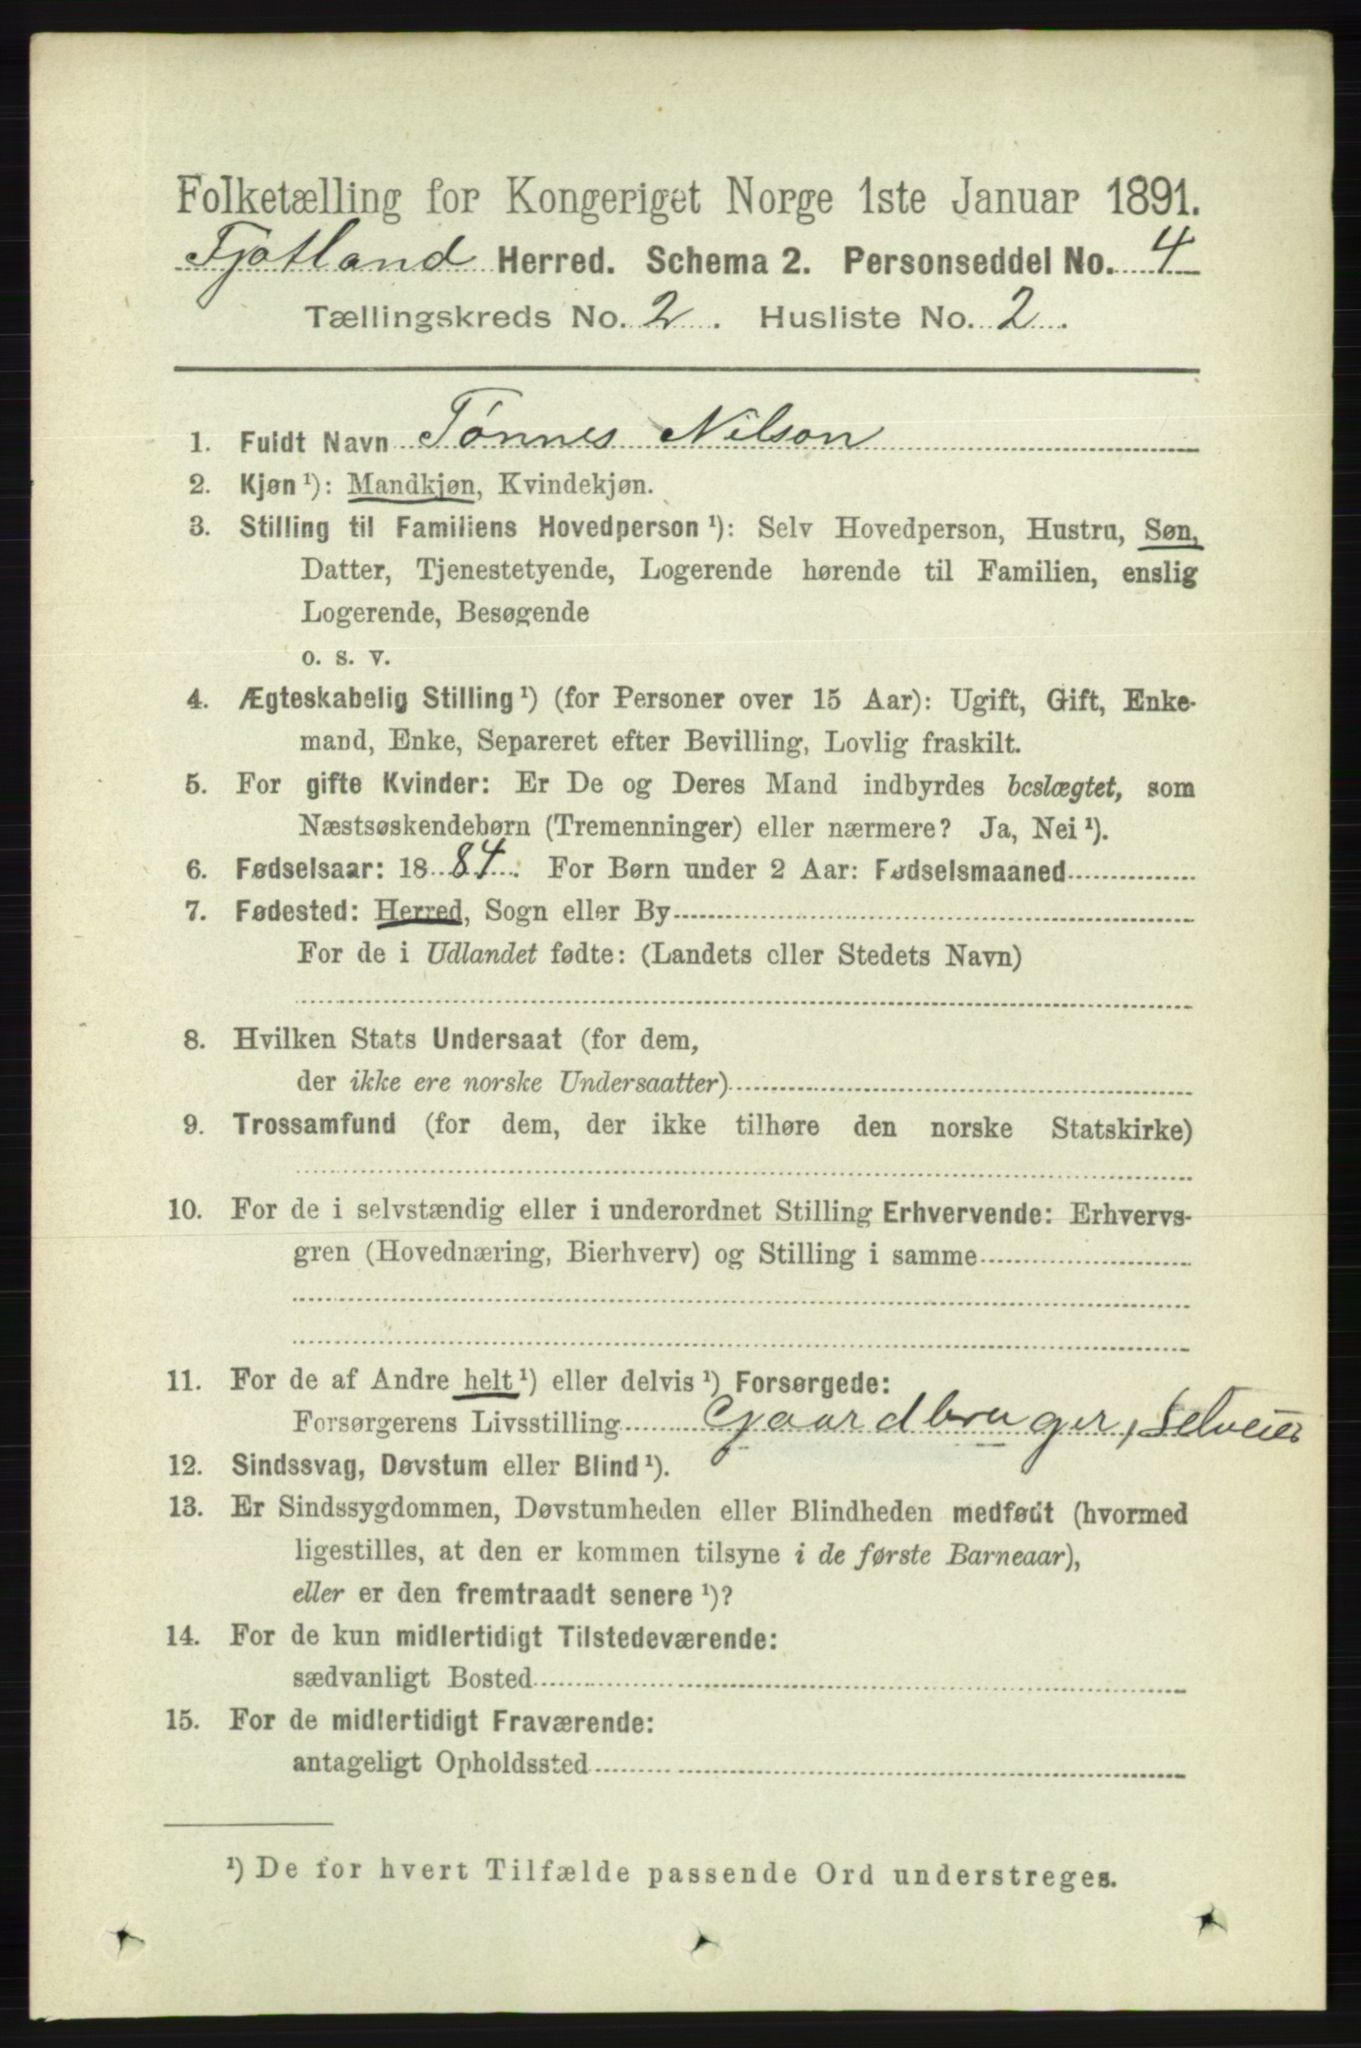 Folketælling for Kongeriget Norge 1ste Januar 1891.
Fjotland Herred. Schema 2. Personseddel No. 4
Tællingskreds No. 2. Husliste No. 2.
1. Fuldt Navn Tønnes Nilson
2. Kjøn ¹): Mandkjøn, Kvindekjøn.
3. Stilling til Familiens Hovedperson ¹): Selv Hovedperson, Hustru, Søn,
Datter, Tjenestetyende, Logerende hørende til Familien, enslig
Logerende, Besøgende
o. s. v.
4. Ægteskabelig Stilling ¹) (for Personer over 15 Aar): Ugift, Gift, Enke-
mand, Enke, Separeret efter Bevilling, Lovlig fraskilt.
5. For gifte Kvinder: Er De og Deres Mand indbyrdes beslægtet, som
Næstsøskendebørn (Tremenninger) eller nærmere? Ja, Nei ¹).
6. Fødselsaar: 1884. For Børn under 2 Aar: Fødselsmaaned
7. Fødested: Herred, Sogn eller By
For de i Udlandet fødte: (Landets eller Stedets Navn)
8. Hvilken Stats Undersaat (for dem,
der ikke ere norske Undersaatter)
9. Trossamfund (for dem, der ikke tilhøre den norske Statskirke)
10. For de i selvstændig eller i underordnet Stilling Erhvervende: Erhvervs-
gren (Hovednæring, Bierhverv) og Stilling i samme
11. For de af Andre helt ¹) eller delvis ¹) Forsørgede:
Forsørgerens Livsstilling Gaardbruger, Selveier
12. Sindssvag, Døvstum eller Blind ¹).
13. Er Sindssygdommen, Døvstumheden eller Blindheden medfødt (hvormed
ligestilles, at den er kommen tilsyne i de første Barneaar),
eller er den fremtraadt senere ¹)?
14. For de kun midlertidigt Tilstedeværende:
sædvanligt Bosted
15. For de midlertidigt Fraværende:
antageligt Opholdssted
¹) De for hvert Tilfælde passende Ord understreges.